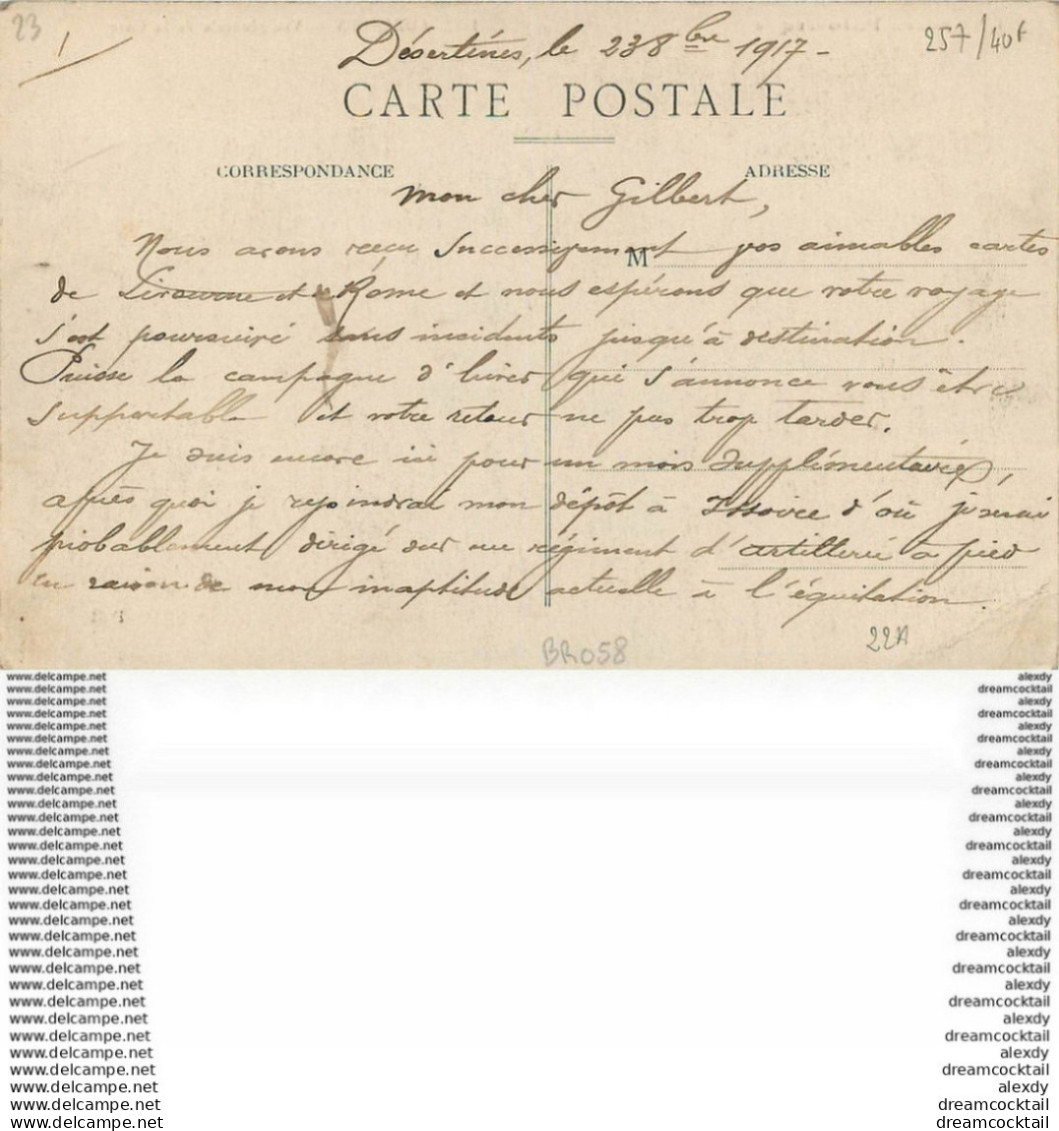 23
257/40f
Désertines, le 23 8bre 1917-
CARTE POSTALE
CORRESPONDANCE
ADRESSE
mon cher Gilbert,
Nous avons reçu successivement vos aimables cartes
M
de et Rome et nous espérons que votre voyage
s'est poursuivi sans incidents jusqu'à destination.
Puisse la campagne d'hiver qui s'annonce vous être
supportable et votre retour ne pas trop tarder.
Je suis encore ici pour un mois supplémentaire,
après quoi je rejoindrai mon dépôt à Issoire d'où je serai
probablement dirigé sur un régiment d'artillerie à pied
en raison de mon inaptitude actuelle à l'équitation.
22A
BR058
www.delcampe.net alexdy
www.delcampe.net dreamcocktail
www.delcampe.net alexdy
www.delcampe.net dreamcocktail
www.delcampe.net alexdy
www.delcampe.net dreamcocktail
www.delcampe.net alexdy
www.delcampe.net dreamcocktail
www.delcampe.net alexdy
www.delcampe.net dreamcocktail
www.delcampe.net alexdy
www.delcampe.net dreamcocktail
www.delcampe.net alexdy
www.delcampe.net dreamcocktail
www.delcampe.net alexdy
www.delcampe.net dreamcocktail
www.delcampe.net alexdy
www.delcampe.net dreamcocktail
www.delcampe.net alexdy
www.delcampe.net dreamcocktail
www.delcampe.net alexdy
www.delcampe.net dreamcocktail
www.delcampe.net alexdy
www.delcampe.net dreamcocktail
www.delcampe.net alexdy
www.delcampe.net dreamcocktail
www.delcampe.net alexdy
www.delcampe.net dreamcocktail
www.delcampe.net alexdy
www.delcampe.net dreamcocktail
www.delcampe.net dreamcocktail